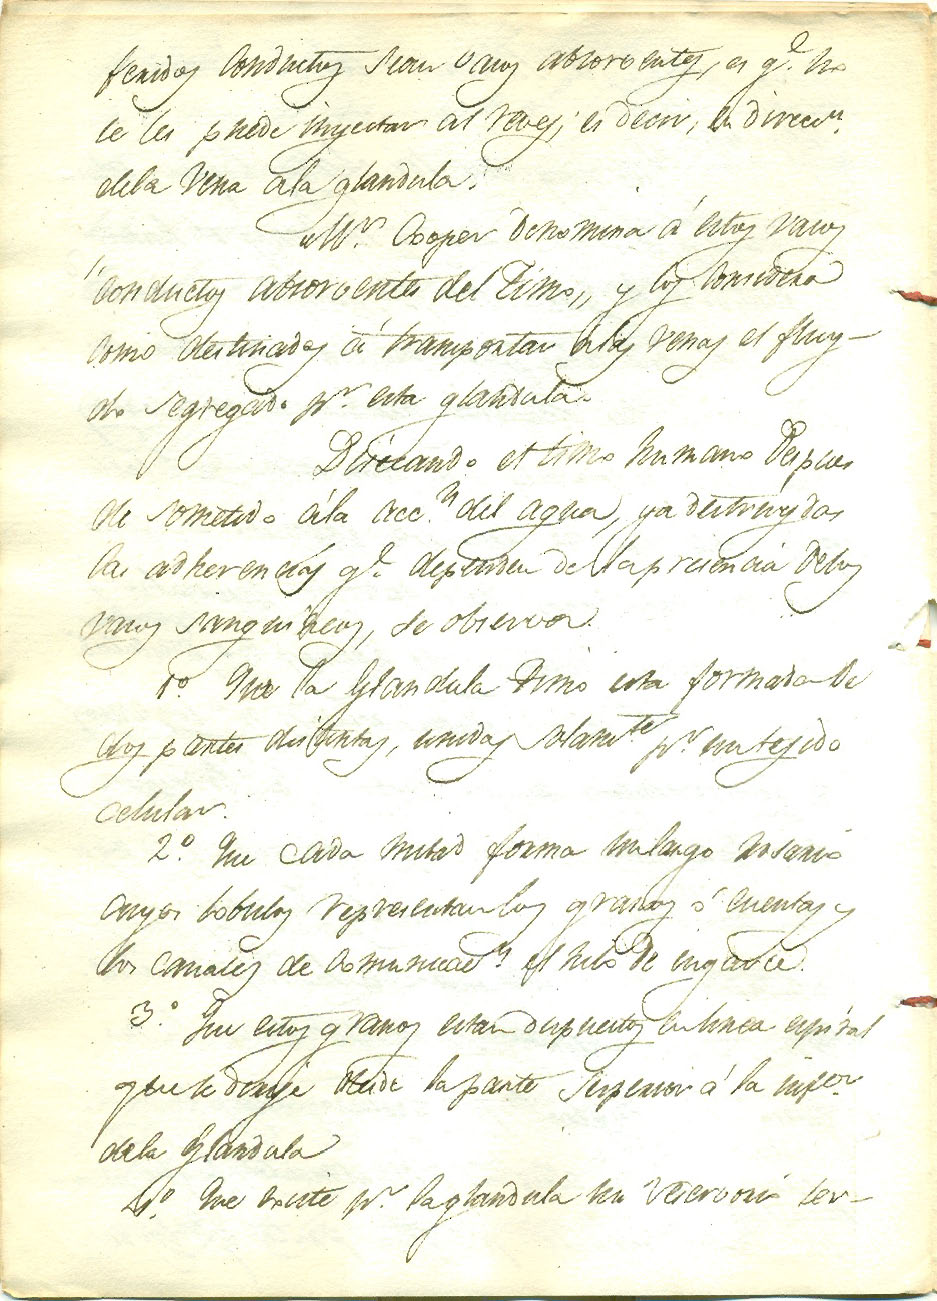 feridos conductos sean vasos absorventes, es q.e no
se les puede inyectar al reves, es decir, en direcc.n
dela vena ala glandula.
Mr. Cooper denomina á estos vasos
"conductos absorventes del Timo,, y los considera
como destinados á transportar alas venas el fluy-
do segregado p.r esta glandula.
Disecando el timo humano despues
de sometido ála acc.n del agua, ya destruydas
las adherencias q.e dependen de la presencia delos
vasos sanguineos, se observa
1.º Que la Glandula Timo esta formada de
dos partes distintas, unidas solam.te p.r un tejido
celular.
2.º Que cada mitad forma un largo rosario
cuyos lobulos representan los granos ó cuentas y
los canales de comunicac.n el hilo de engarce.
3.º Que estos granos estan dispuestos en linea espiral
que se dirije desde la parte superior á la infer.or
dela Glandula
4.º Que existe p.r la glandula un reservorio cer-